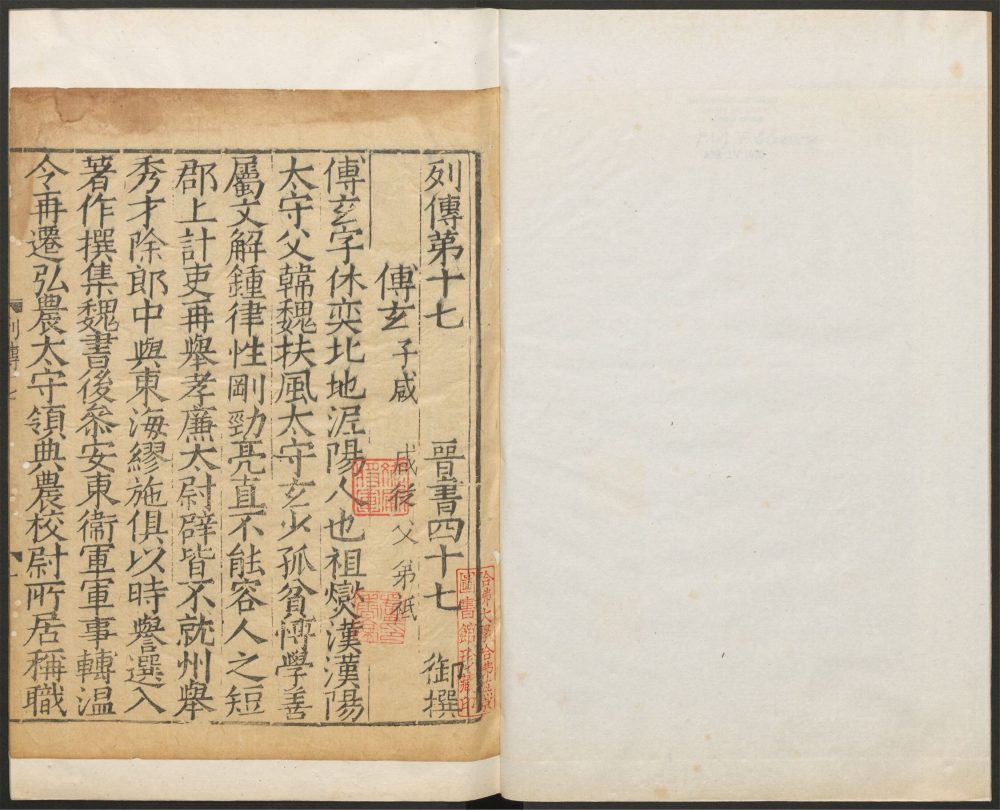 列傳第十七 晉書四十七 御撰
傅玄 子咸 咸從父弟祗
傅玄字休奕北地泥陽人也祖燮漢漢陽
太守父韓魏扶風太守玄少孤貧博學善
屬文解鍾律性剛勁亮直不能容人之短
郡上計吏再舉孝廉太尉辟皆不就州舉
秀才除郎中與東海繆施俱以時譽選入
著作撰集魏書後叅安東衞軍軍事轉溫
令再遷弘農太守領典農校尉所居稱職
列傳